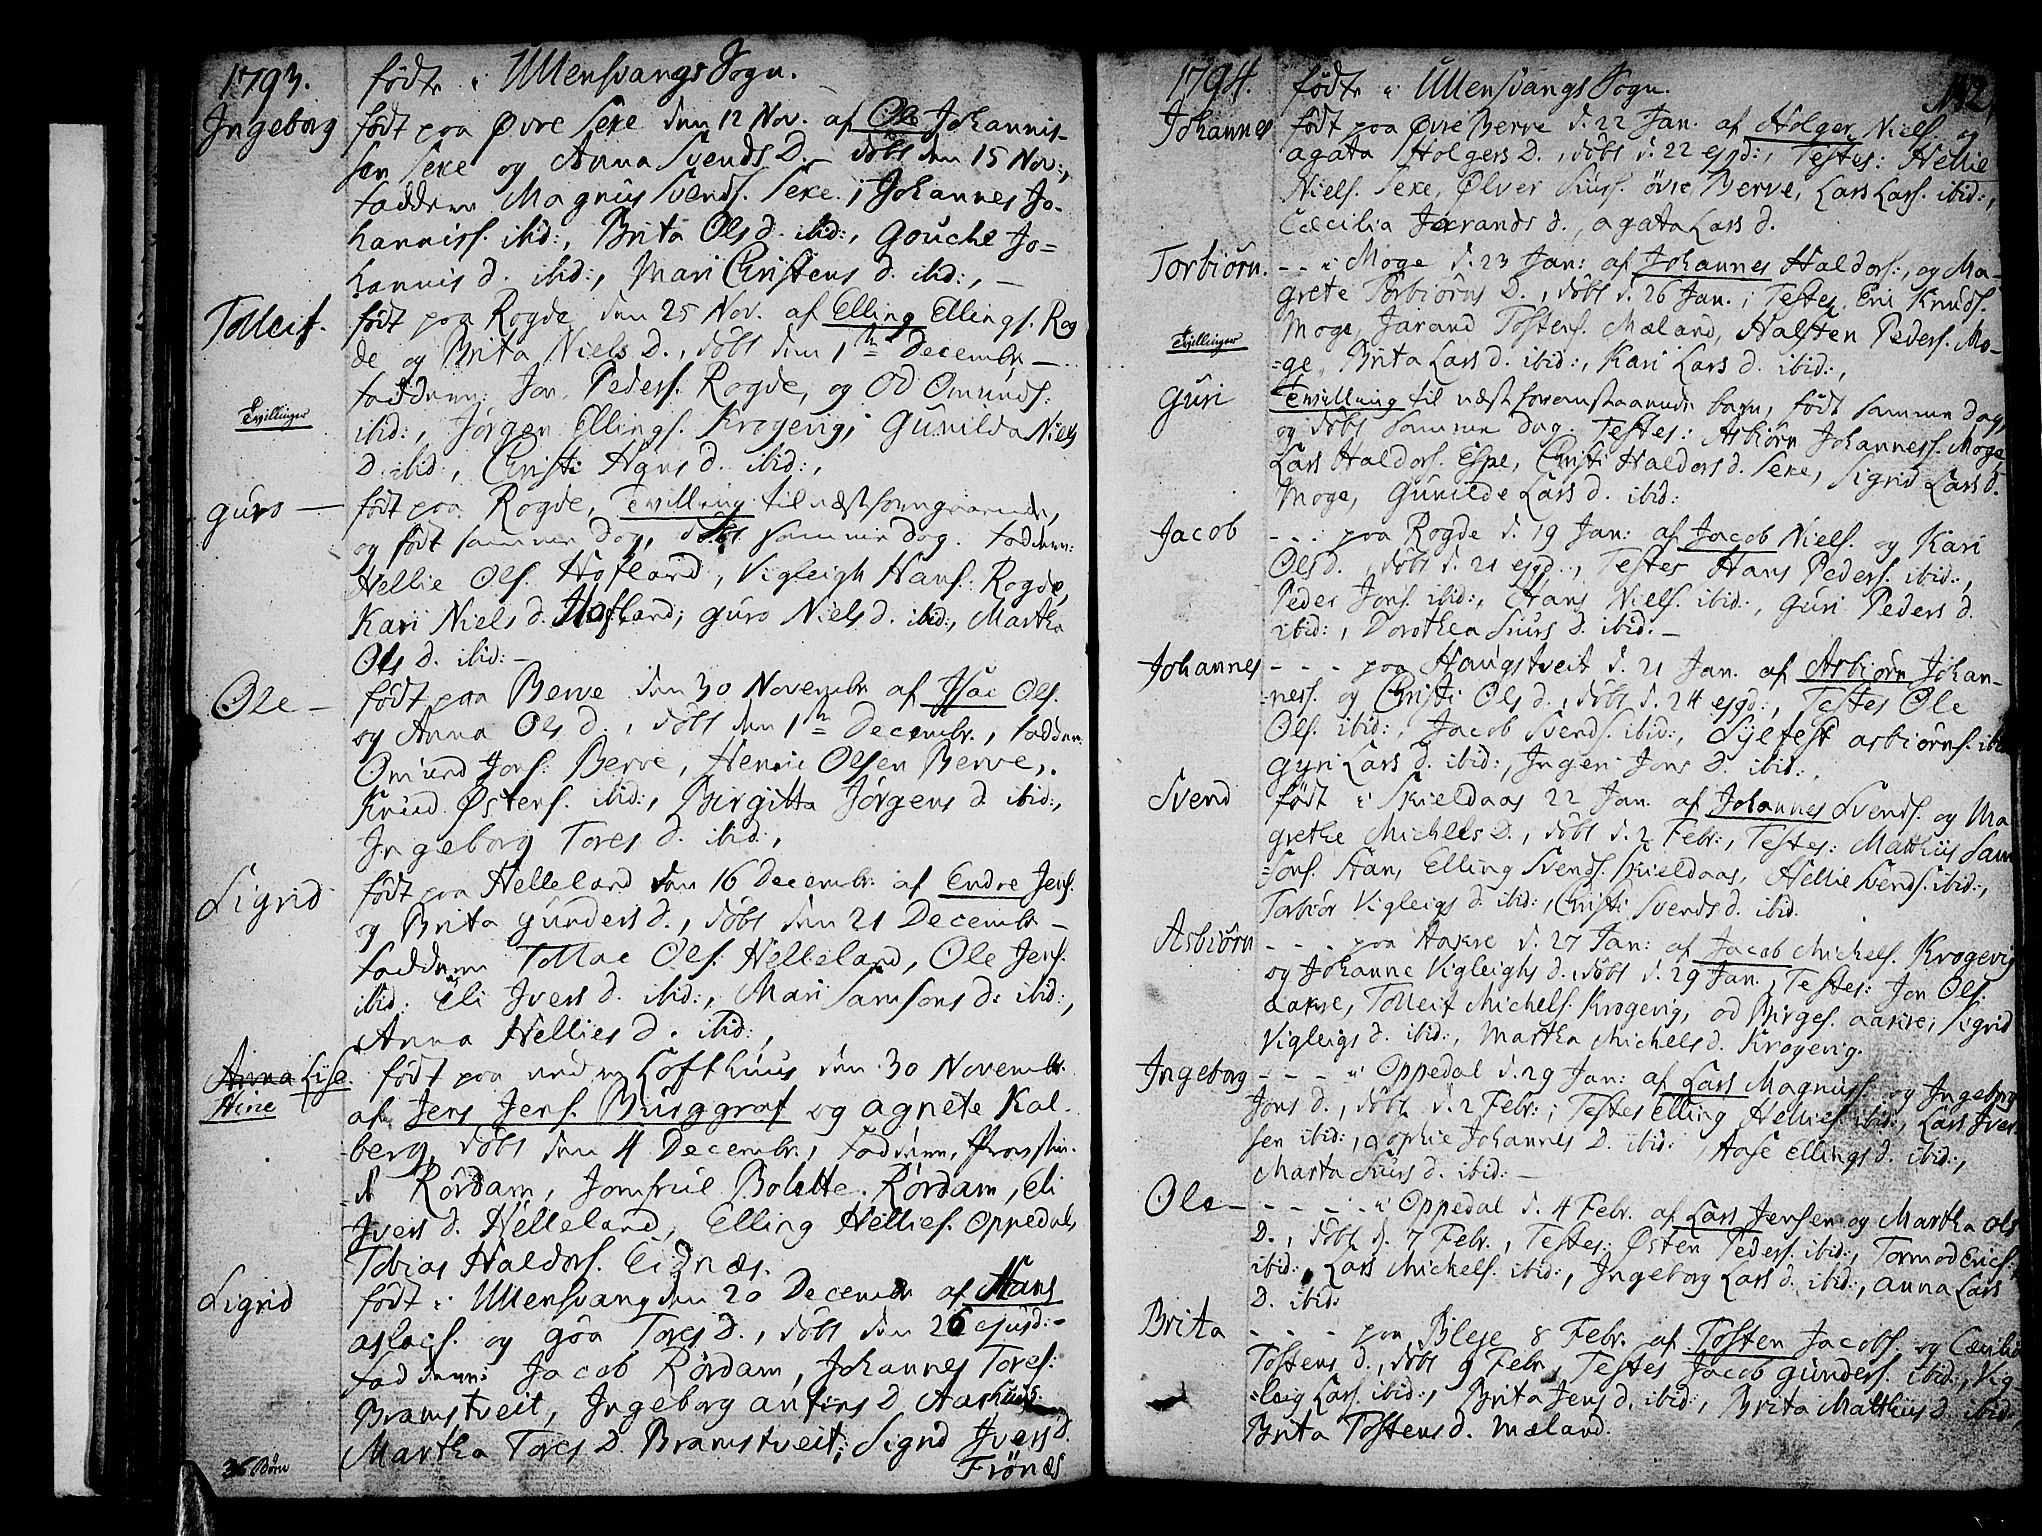 1793. født i Ullensvangs Sogn.
Ingeborg født paa Øvre Sexe den 12 Nov. af Ole Johannis-
sen Sexe og Anna Svends D. døbt den 15 Nov:,
faddern Magnus Svends. Sexe, Johannes Jo-
hanniss. ibid:, Brita Ols d. ibid:, Gouche Jo=
hannis d. ibid:, Mari Christens d. ibid:, —
Tolleif. født paa Rogde den 25 Nov. af Elling Ellings. Rog
de og Brita Niels D., døbt den 1te Decembr —
faddern: Jon Peders. Rogde, og Od Omunds.
Tvillinger
ibid:, Jørgen Ellings. Krogevig, Gunilda Niels
D. ibid:, Christi Hans d. ibid:,
guro — født paa Rogde, Tvilling til næstforegaaende,
og født samme dag, døbt samme dag. faddern:
Hellie Ols. Hofland, Vigleigh Hans. Rogde,
Kari Niels d. Hofland, guro Niels d. ibid:, Martha
Ols d. ibid: —
Ole — født paa Berve den 30 Novembr af Isac Ols.
og Anna Ols d., døbt den 1te Decembr., faddern:
Omund Jons. Berve, Henric Olsen Berve,
Knud Østens. ibid:, Birgitta Jørgens d. ibid:,
Ingeborg Tores d. ibid:,
Sigrid født paa Helleland den 16 Decembr. af Endre Jens.
og Brita Gunders d., døbt den 21 Decembr —
faddern Tollac Ols. Helleland, Ole Jens.
ibid. Eli Ivers d. ibid:, Mari Samsons d: ibid:,
Anna Hellies d. ibid:,
Anna Lise. født paa nedre Lofthuus den 30 Novembr.
Hine
af Jens Jens. Burggraf og Agnete Kal-
berg, døbt den 4 Decembr., faddern, Provstin-
de Rørdam, Jomfrue Bolette Rørdam, Eli
Ivers d. Helleland, Elling Hellies. Oppedal,
Tobias Haldors. Eidnæs.
Sigrid født i Ullensvang den 20 Decembr af Hans
Aslacs. og Göa Tores D., døbt den 26 ejusd: —
faddern: Jacob Rørdam, Johannes Tores.
Bramstveit, Ingeborg D. Aarhuus.
Martha Tores D. Bramstveit, Sigrid Ivers d.
36 Børn
Frønæs
1794. født i Ullensvangs Sogn. 142
Johannes født paa Øvre Berve d. 22 Jan. af Holger Niels. og
Agata Holgers D., døbt d. 22 ejsd:, Testes: Hellie
Niels. Sexe, Ølver Siurs. Øvre Berve, Lars Lars. ibid:,
Cæcilia Jarands d., Agata Lars d.
Torbiørn. - - i Moge d. 23 Jan: af Johannes Haldors:, og Ma-
grete Torbiørns D., døbt d. 26 Jan. ; Testes, Eric Knuds.
Moge, Jarand Tostens. Mæland, Halsten Peders. Mo-
Tvillinger
=ge, Brita Lars d. ibid:, Kari Lars d. ibid:,
Guri Tvilling til næst foranstaaende barn, født samme dag,
og døbt samme dag. Testes: Asbiørn Johanness. Moge
Lars Haldors. Espe, Christi Haldors d. Sexe, Sigrid Lars d.
Moge, Gunilde Lars d. ibid:
Jacob - - . paa Rogde d. 19 Jan: af Jacob Niels. og Kari
Ols d., døbt d. 21 ejsd., Testes Hans Peders. ibid:,
Peder Jons. ibid:, Frans Niels. ibid:, Guri Peders d.
ibid:, Dorothea Siurs d. ibid. —
Johannes - - - paa Haugstveit d. 21 Jan. af Asbiørn Johan-
-ness. og Christi Ols d., døbt d. 24 ejsd:, Testes Ole
Ols. ibid:, Jacob Svends. ibid:, Sylfest Asbiørns. ibid
Gyri Lars d. ibid:, Ingeri Jons d. ibid:,
Svend født i Skieldaas 22 Jan. af Johannes Svends. og Ma
grethe Michels D., døbt d. 2 Febr:, Testes: Matthiis Sam
=sons. Aan, Elling Svends. Skieldaas, Hellie Svends. ibid:,
Torbiør Vigleigs d. ibid:, Christi Svends d. ibid.
Asbiørn - - - paa Aakre d. 27 Jan: af Jacob Michels. Krogevig
og Johanne Vigleighs d. døbt d. 29 Jan., Testes: Jon Ols.
Aakre, Tolleif Michels. Krogevig, Od Birges. Aakre, Sigrid
Vigleigs d. ibid:, Martha Michels d. Krogevig.
Ingeborg - - - i Oppedal d. 29 Jan: af Lars Magnuss. og Ingeborg
Jons d., døbt d. 2 Febr: ; Testes Elling Hellies. ibid:, Lars Iver
sen ibid:, Sophie Johannes D. ibid: Aase Ellings d. ibid:,
Marta Siurs d. ibid: —
Ole - - - - - i Oppedal d. 4 Febr. af Lars Jensen og Martha Ols
D., døbt d. 7 Febr., Testes: Østen Peders. ibid:, Tormod Erics.
ibid:, Lars Michels. ibid:, Ingeborg Lars d. ibid:, Anna Lars
D. ibid:
Brita - - - paa Bleye 8 Febr. af Tosten Jacobs. og Cæcilia
Tostens d., døbt 9 Febr, Testes Jacob Gunders. ibid:, Vig-
=leig Lars. ibid:, Brita Jens d. ibid:, Brita Matthiis d. ibid:,
Brita Tostens d. Mæland.